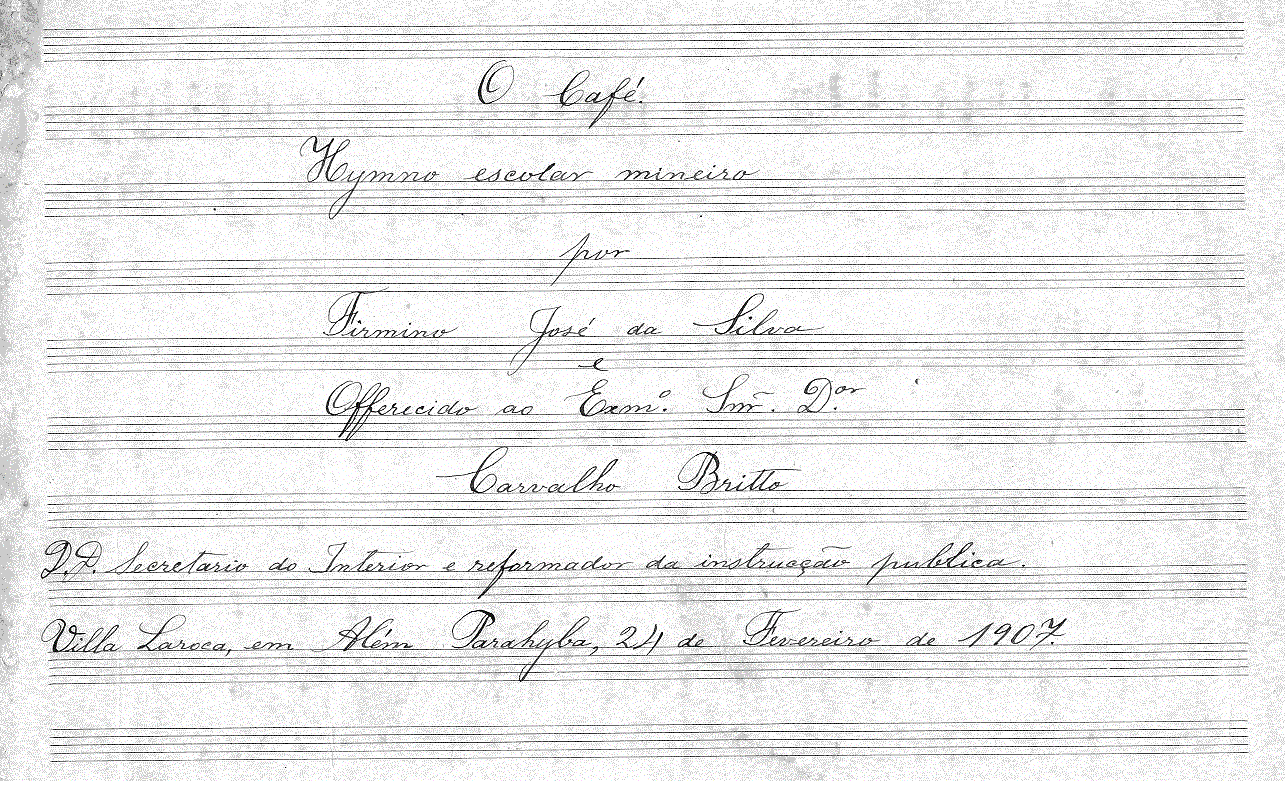 O Café.
Hymno escolar mineiro
por
Firmino José da Silva
e
Offerecido ao Exmº. Snr̃. Dor.
Carvalho Britto
D.D. Secretario do Interior e reformador da instrucção publica.
Villa Laroca, em Além Parahyba, 24 de Fevereiro de 1907.